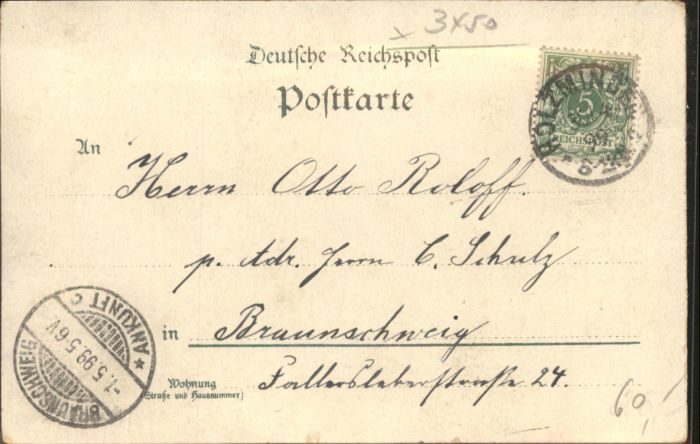 x 3x50
Deutsche Reichspost
Postkarte
5
REICHSPOST
HOLZMINDEN
An
Herrn Otto Roloff.
p. Adr. Herrn C. Schulz
in Braunschweig
Wohnung
(Straße und Hausnummer)
Fallersleberstraße 24.
BRAUNSCHWEIG
-1.5.99.5-6V.
* ANKUNFT C
60,